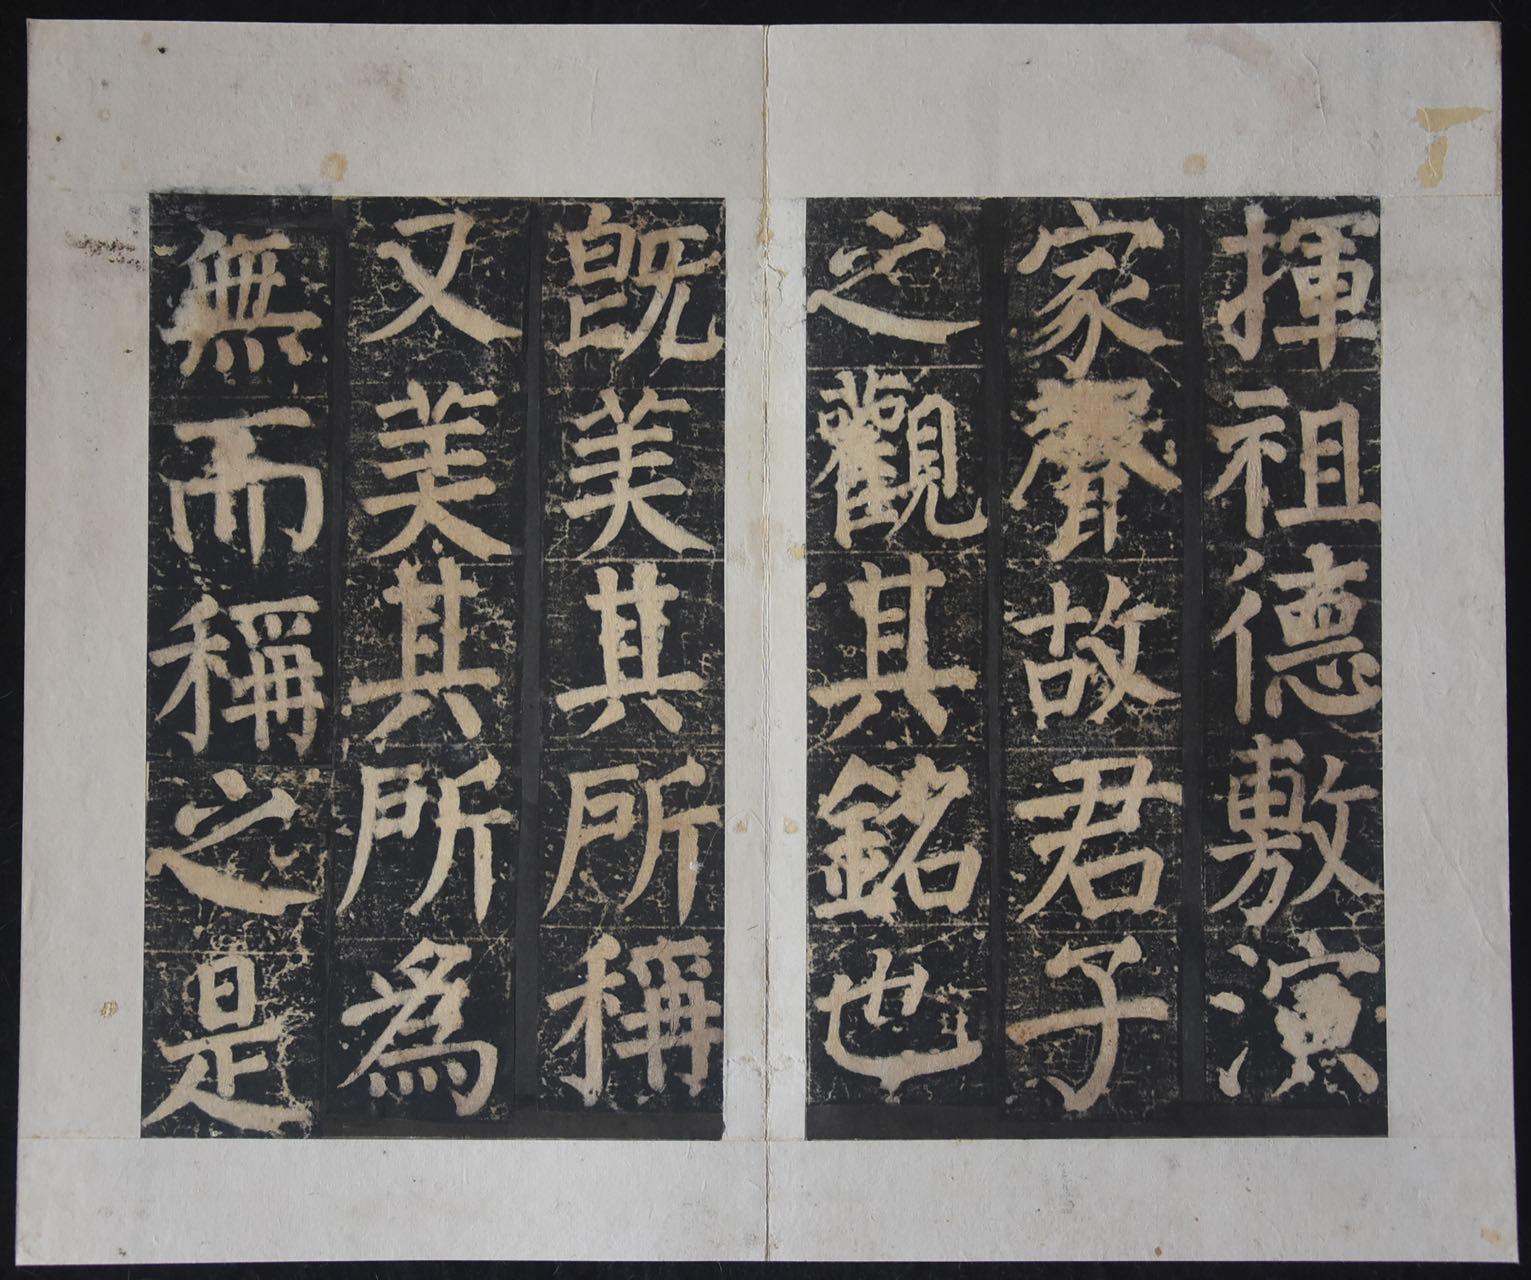 揮祖德敷演
家聲故君子
之觀其銘也
既美其所稱
又美其所爲
無而稱之是